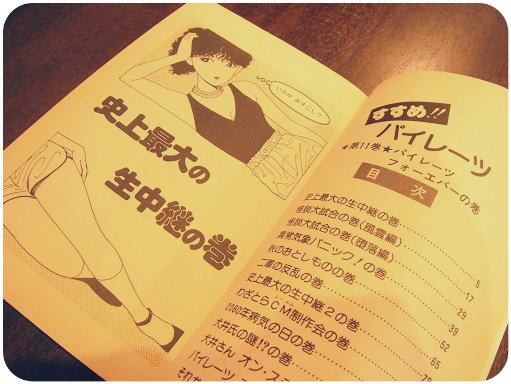 いかが おすごし？
史上最大の
生中継の巻
すすめ!!
パイレーツ
★第11巻★パイレーツ
フォーエバーの巻
目次
史上最大の生中継の巻………5
怪談大試合の巻(風雲編)………17
怪談大試合の巻(堕落編)………29
異常気象パニック！の巻………39
秋のおとしものの巻………52
二軍の反乱の巻………65
史上最大の生中継2の巻………
わざとらCM制作会の巻………
2080年病気の日の巻………
犬井氏の謎!?の巻
犬井さん オン・ス
パイレーツ